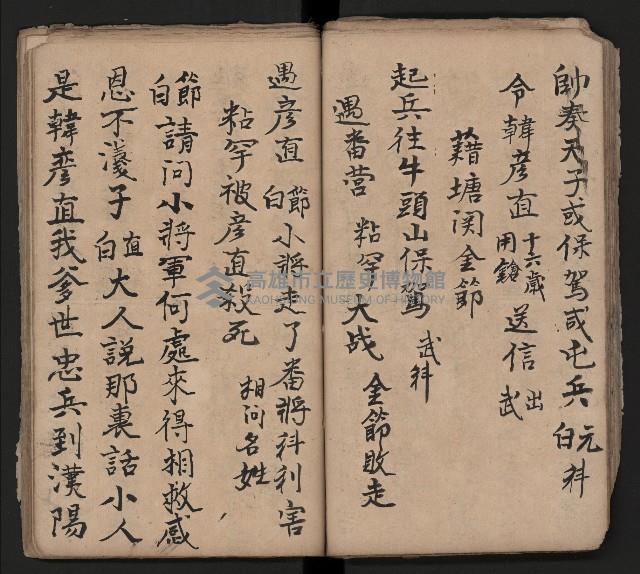 帥奏天子或保駕或屯兵元科白
令韓彥直十六歲用鎗送信出武
藉塘関金節
起兵往牛頭山保駕武科
遇番营粘罕大战金節敗走
遇彥直節白小將走了番將科利害
粘罕被彥直殺死相问名姓
節白請问小將軍何處來得相救感
恩不淺子直白大人説那裏話小人
是韓彥直我爹世忠兵到漢陽
高雄市立歷史博物館
KAOHSIUNG MUSEUM OF HISTORY